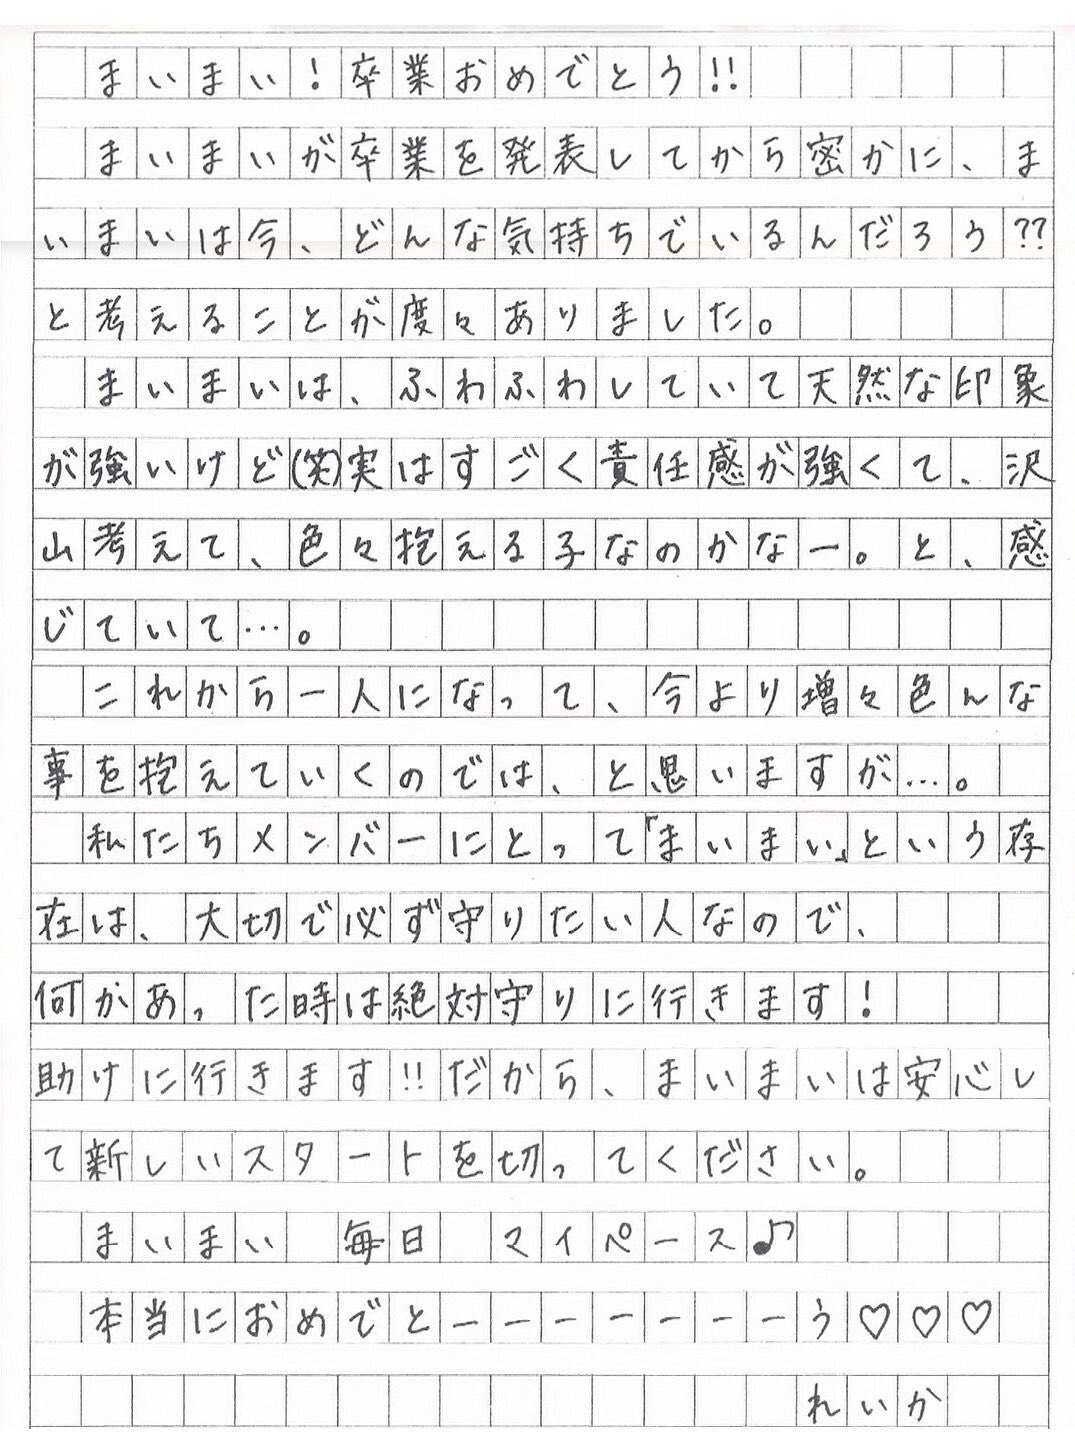 まいまい！卒業おめでとう!!
まいまいが卒業を発表してから密かに、ま
いまいは今、どんな気持ちでいるんだろう??
と考えることが度々ありました。
まいまいは、ふわふわしていて天然な印象
が強いけど(笑)実はすごく責任感が強くて、沢
山考えて、色々抱える子なのかなー。と、感
じていて…。
これから一人になって、今より増々色んな
事を抱えていくのでは、と思いますが…。
私たちメンバーにとって「まいまい」という存
在は、大切で必ず守りたい人なので、
何かあった時は絶対守りに行きます！
助けに行きます!!だから、まいまいは安心し
て新しいスタートを切ってください。
まいまい 毎日 マイペース♪
本当におめでとーーーーーーーう♡♡♡
れいか